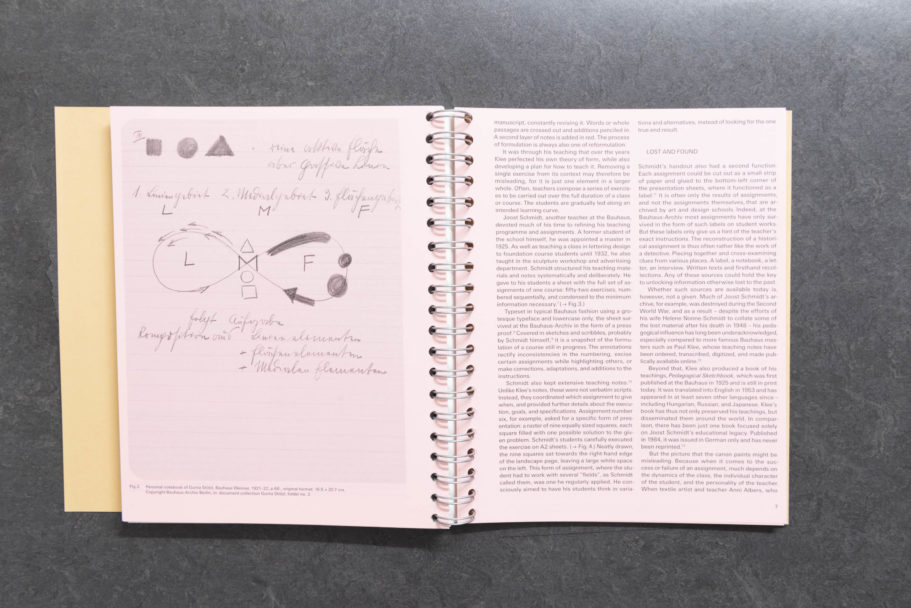 III
1. Liniengebiet 2. Medialgebiet 3.
L M F
L M F
folgt Aufgabe
Komposition mit
+ Flächenelementen
+ Medialen Elementen
Fig.2 Personal notebook of Gunta Stölzl, Bauhaus Weimar, 1921–22, p.66, original format: 16.5 × 20.7 cm.
Copyright Bauhaus-Archiv Berlin, in: document collection Gunta Stölzl, folder no. 3
manuscript, constantly revising it. Words or whole
passages are crossed out and additions penciled in.
A second layer of notes is added in red. The process
of formulation is always also one of reformulation.
It was through his teaching that over the years
Klee perfected his own theory of form, while also
developing a plan for how to teach it. Removing a
single exercise from its context may therefore be
misleading, for it is just one element in a larger
whole. Often, teachers compose a series of exercise-
to be carried out over the full duration of a class
or course. The students are gradually led along an
intended learning curve.
Joost Schmidt, another teacher at the Bauhaus,
devoted much of his time to refining his teaching
programme and assignments. A former student of
the school himself, he was appointed a master in
1925. As well as teaching a class in lettering design
to foundation course students until 1932, he also
taught in the sculpture workshop and advertising
department. Schmidt structured his teaching mate-
rials and notes systematically and deliberately. He
gave to his students a sheet with the full set of as-
signments of one course: fifty-two exercises, num-
bered sequentially, and condensed to the minimum
information necessary. (→ Fig. 3.)
Typeset in typical Bauhaus fashion using a gro-
tesque typeface and lowercase only, the sheet sur-
vived at the Bauhaus-Archiv in the form of a press
proof. Covered in sketches and scribbles, probably
by Schmidt himself, it is a snapshot of the formula-
tion of a course still in progress. The annotations
rectify inconsistencies in the numbering, excise
certain assignments while highlighting others, or
make corrections, adaptations, and additions to the
instructions.
Schmidt also kept extensive teaching notes.
Unlike Klee's notes, these were not verbatim scripts.
Instead, they coordinated which assignment to give
when, and provided further details about the execu-
tion, goals, and specifications. Assignment number
six, for example, asked for a specific form of pres-
entation: a raster of nine equally sized squares, each
square filled with one possible solution to the giv-
en problem. Schmidt's students carefully executed
the exercise on A2 sheets. (→ Fig. 4.) Neatly drawn,
the nine squares set towards the right-hand edge
of the landscape page, leaving a large white space
on the left. This form of assignment, where the stu-
dent had to work with several "fields", as Schmidt
called them, was one he regularly applied. He con-
sciously aimed to have his students think in varia-
tions and alternatives, instead of looking for the one
true end result.
LOST AND FOUND
Schmidt's handout also had a second function.
Each assignment could be cut out as a small strip
of paper and glued to the bottom-left corner of
the presentation sheets, where it functioned as a
label. It is often only the results of assignments,
and not the assignments themselves, that are ar-
chived by art and design schools. Indeed, at the
Bauhaus-Archiv most assignments have only sur-
vived in the form of such labels on student works.
But these labels only give us a hint of the teacher's
exact instructions. The reconstruction of a histori-
cal assignment is thus often rather like the work of
a detective. Piecing together and cross-examining
clues from various places. A label, a notebook, a let-
ter, an interview. Written texts and firsthand recol-
lections. Any of these sources could hold the key
to unlocking information otherwise lost to the past.
Whether such sources are available today is,
however, not a given. Much of Joost Schmidt's ar-
chive, for example, was destroyed during the Second
World War, and as a result – despite the efforts of
his wife Helene Nonné Schmidt to collate some of
the lost material after his death in 1948 – his peda-
gogical influence has long been underacknowledged,
especially compared to more famous Bauhaus mas-
ters such as Paul Klee, whose teaching notes have
been ordered, transcribed, digitized, and made pub-
licly available online.
Beyond that, Klee also produced a book of his
teachings, Pedagogical Sketchbook, which was first
published at the Bauhaus in 1925 and is still in print
today. It was translated into English in 1953 and has
appeared in at least seven other languages since –
including Hungarian, Russian, and Japanese. Klee's
book has thus not only preserved his teachings, but
disseminated them around the world. In compar-
ison, there has been just one book focused solely
on Joost Schmidt's educational legacy. Published
in 1984, it was issued in German only and has never
been reprinted.
But the picture that the canon paints might be
misleading. Because when it comes to the suc-
cess or failure of an assignment, much depends on
the dynamics of the class, the individual character
of the student, and the personality of the teacher.
When textile artist and teacher Anni Albers, who
7